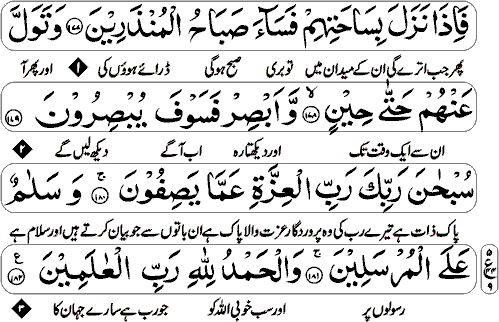 فَاِذَا نَزَلَ بِسَاحَتِهِمْ فَسَآءَ صَبَاحُ الْمُنْذَرِيْنَ ﴿۱۷۷﴾ وَتَوَلَّ
پھر جب اترے گی ان کے میدان میں تو بری صبح ہوگی ڈرائے ہوؤں کی ۱ اور پھر آ
عَنْهُمْ حَتّٰى حِيْنٍ ﴿۱۷۸﴾ وَّاَبْصِرْ فَسَوْفَ يُبْصِرُوْنَ ﴿۱۷۹﴾
ان سے ایک وقت تک اور دیکھتا رہ اب آگے دیکھ لیں گے ۲
سُبْحٰنَ رَبِّكَ رَبِّ الْعِزَّةِ عَمَّا يَصِفُوْنَ ﴿۱۸۰﴾ وَسَلٰمٌ
پاک ذات ہے تیرے رب کی وہ پروردگار عزت والا پاک ہے ان باتوں سے جو بیان کرتے ہیں اور سلام ہے
عَلَى الْمُرْسَلِيْنَ ﴿۱۸۱﴾ وَالْحَمْدُ لِلّٰهِ رَبِّ الْعٰلَمِيْنَ ﴿۱۸۲﴾
رسولوں پر اور سب خوبی اللہ کو جو رب ہے سارے جہان کا ۳